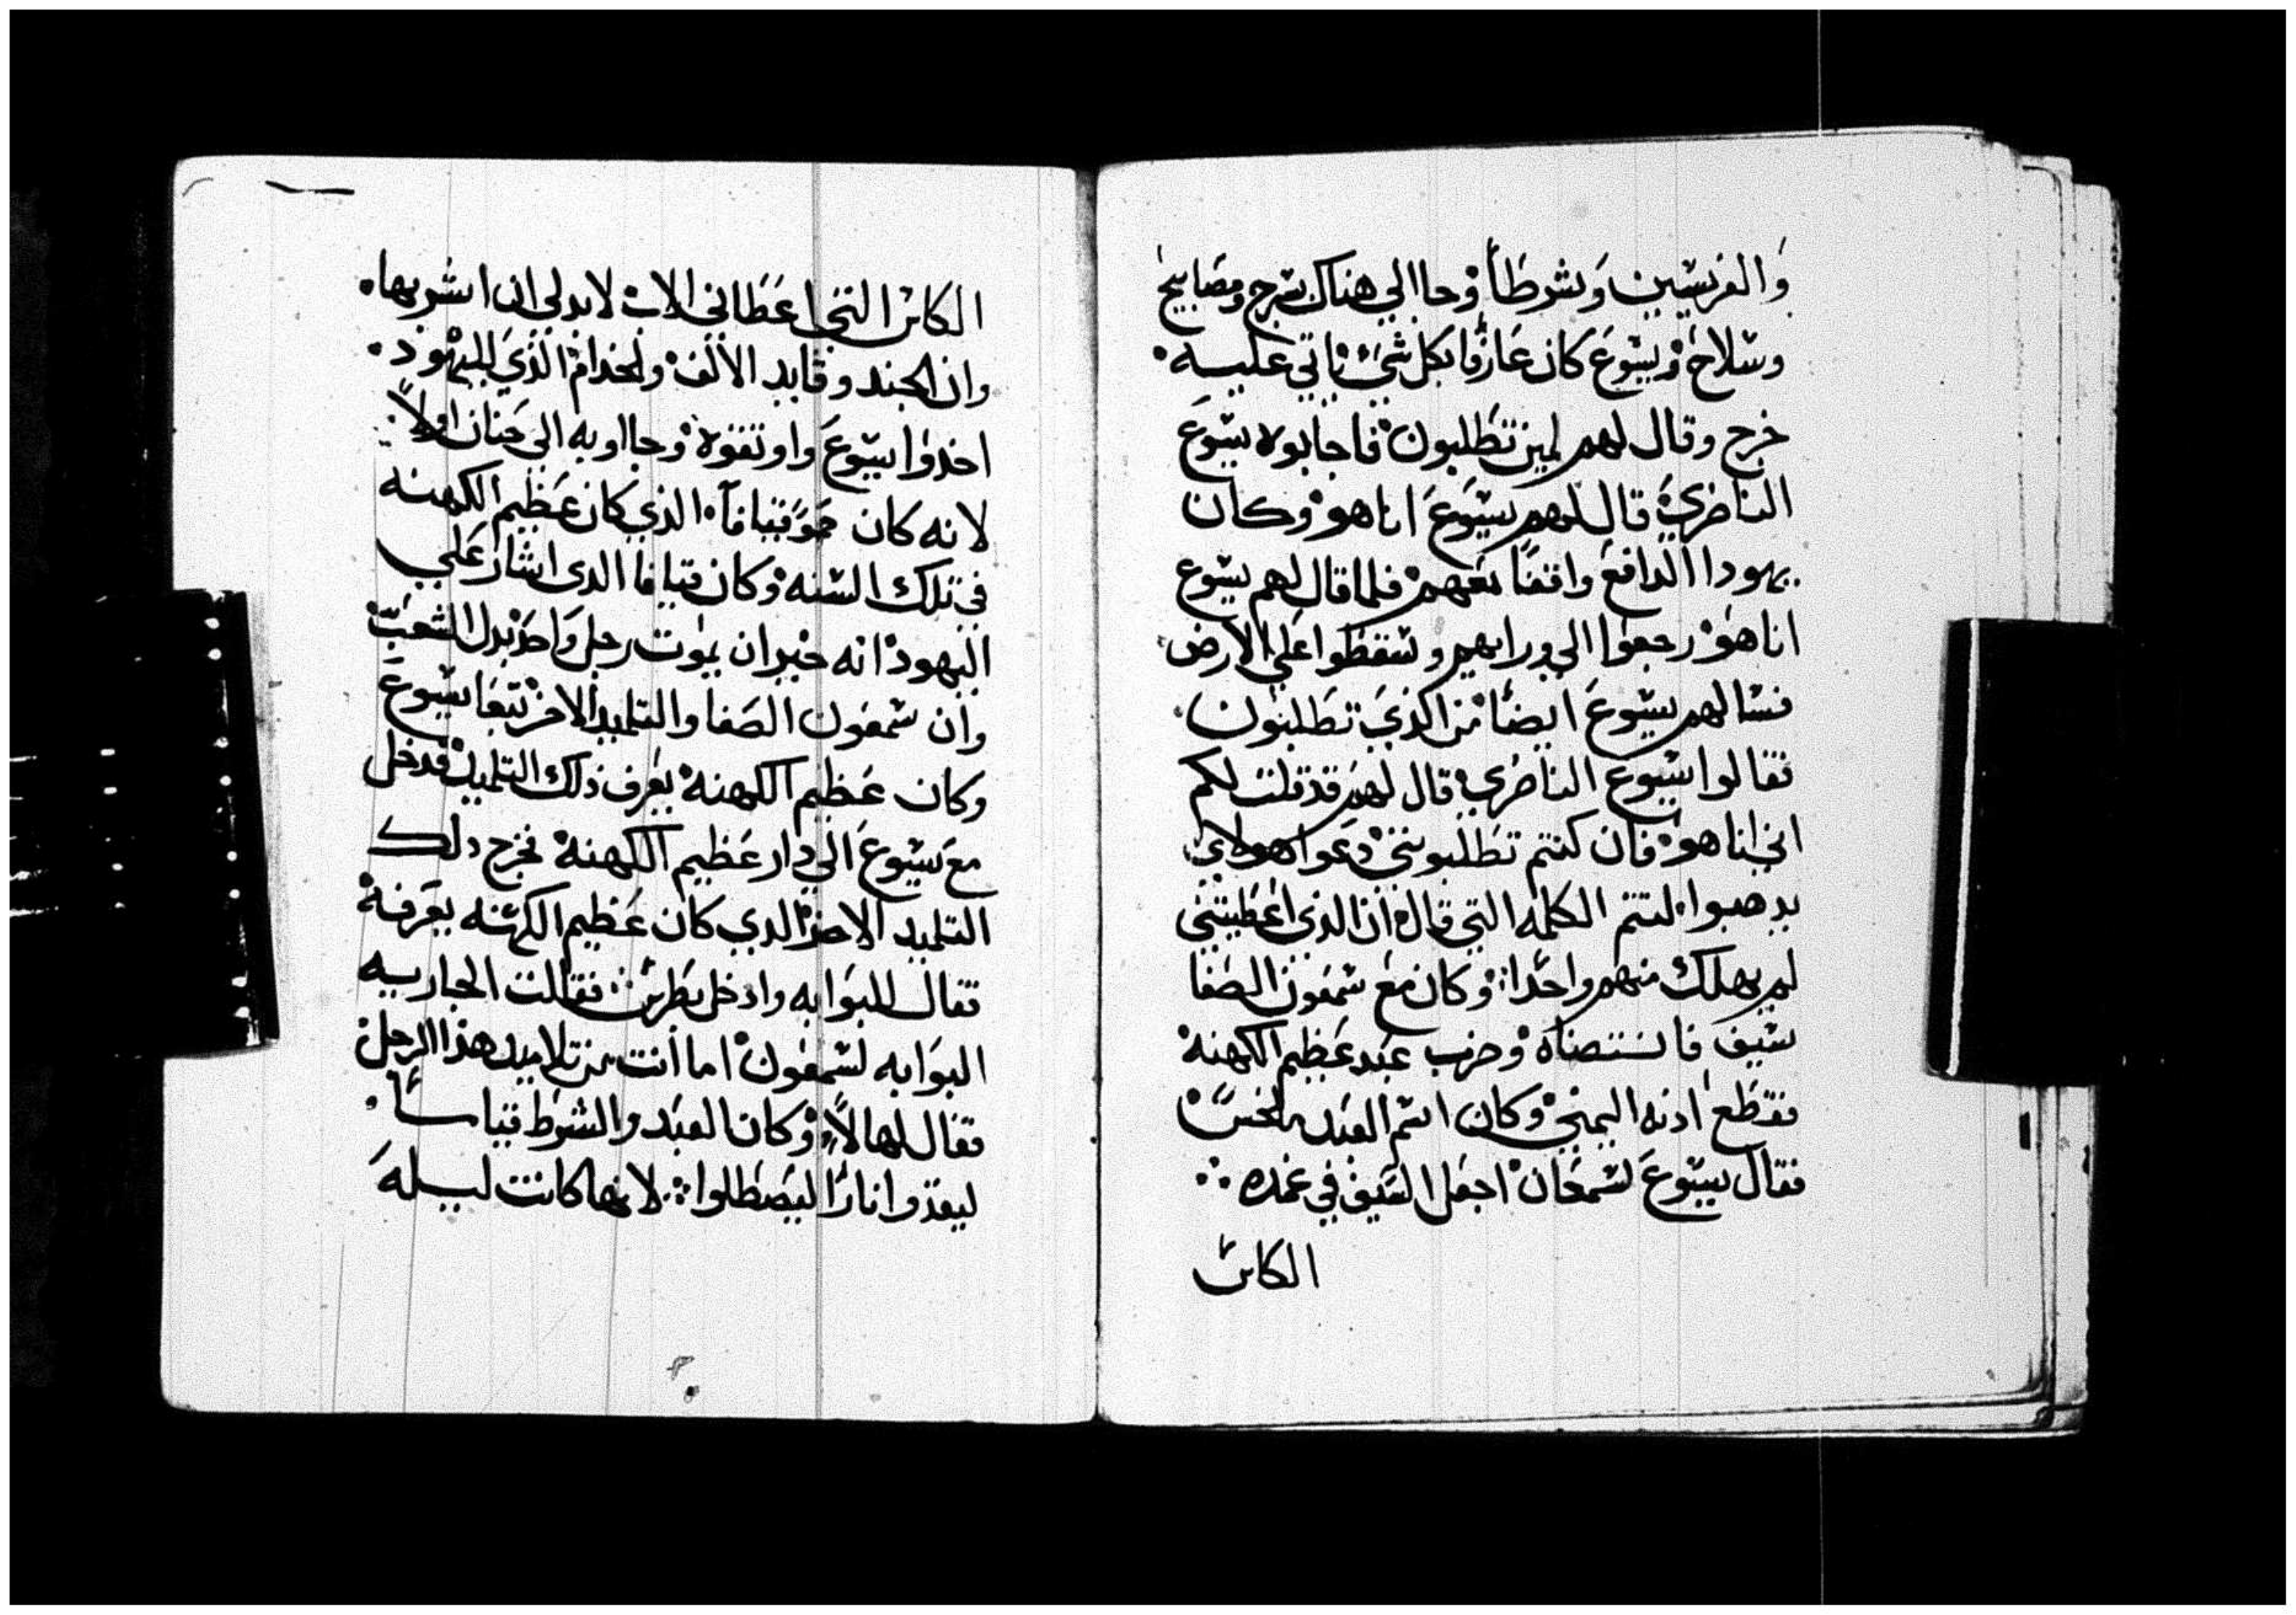 والفريسيين وشوطا وجا الي هناك بسرج ومصابيح
وسلاح ويسوع كان عارفا بكل شي ياتي عليه
خرج وقال لهم لمن تطلبون فاجابوه يسوع
الناصري قال لهم يسوع انا هو وكان
يهودا الدافع واقفا معهم فلما قال لهم يسوع
انا هو رجعوا الي ورايهم وسقطوا علي الارض
فسالهم يسوع ايضا من الذي تطلبون
فقالوا يسوع الناصري قال لهم قد قلت لكم
اني انا هو فان كنتم تطلبونني دعوا هولاي
يدهبوا لتتم الكلمه التي قال ان الذي اعطيتني
لم يهلك منهم واحدا وكان مع شمعون الصفا
سيف فانتضاه وضرب عبد عظيم الكهنة
فقطع ادنه اليمني وكان اسم العبد ملخس
فقال يسوع لشمعان اجعل السيف في غمده
الكاس
الكاس التي اعطاني الاب لابد لي ان اشربها
وان الجند وقايد الالف ولخدام الذي لليهود
اخدوا يسوع واوتقوه وجااو به الي حنان اولا
لانه كان حمو قيافا الذي كان عظيم الكهنه
في تلك السنه وكان قيافا الدى اشار علي
اليهود انه خير ان يموت رجل واحد بدل الشعب
وان شمعون الصفا والتلميد الاخر تبعا يسوع
وكان عظيم الكهنة يعرف ذلك التلميد فدخل
مع يسوع الي دار عظيم الكهنة فخرج دلك
التلميد الاخر الدي كان عظيم الكهنه يعرفه
فقال للبوابه وادخل بطرس فقالت الجاريه
البوابه لشمعون اما انت من تلاميد هذا الرجل
فقال لها لا وكان العبد والشوط قياما
ليقدوا نارا ليصطلوا لانها كانت ليله